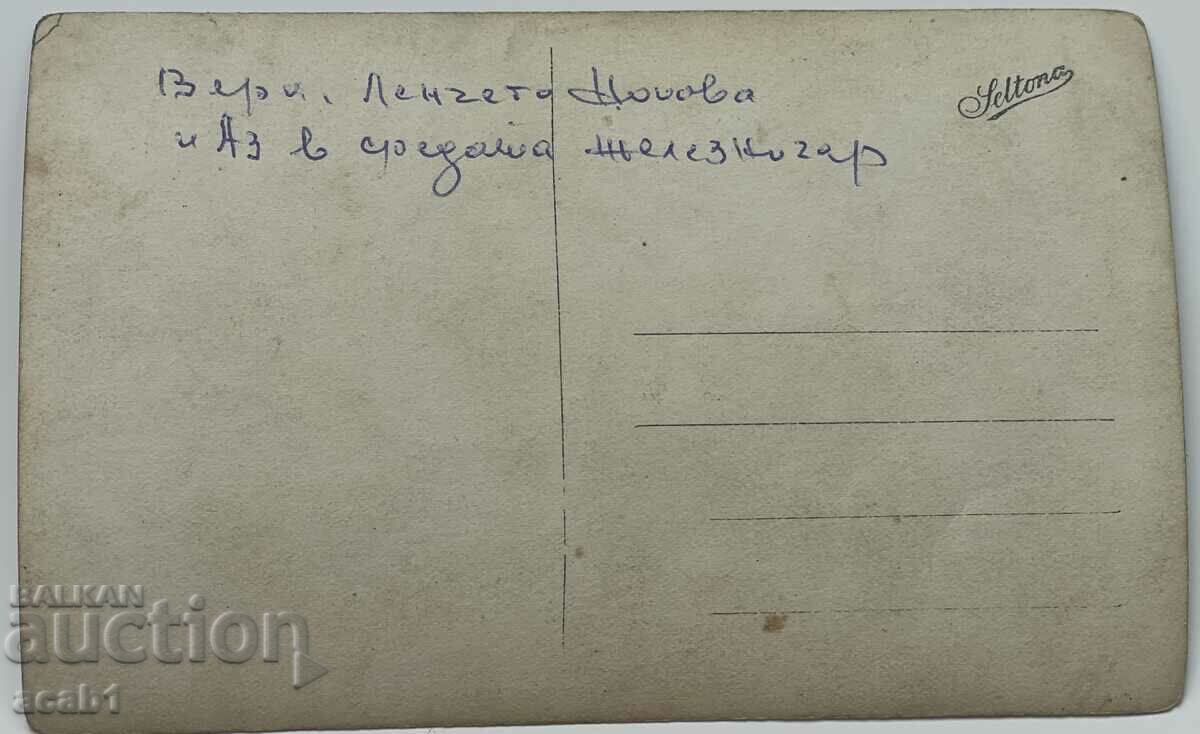 Вери, Ленчето Цонова
и Аз в средата железничар
Seltona
BALKAN
auction
acab1